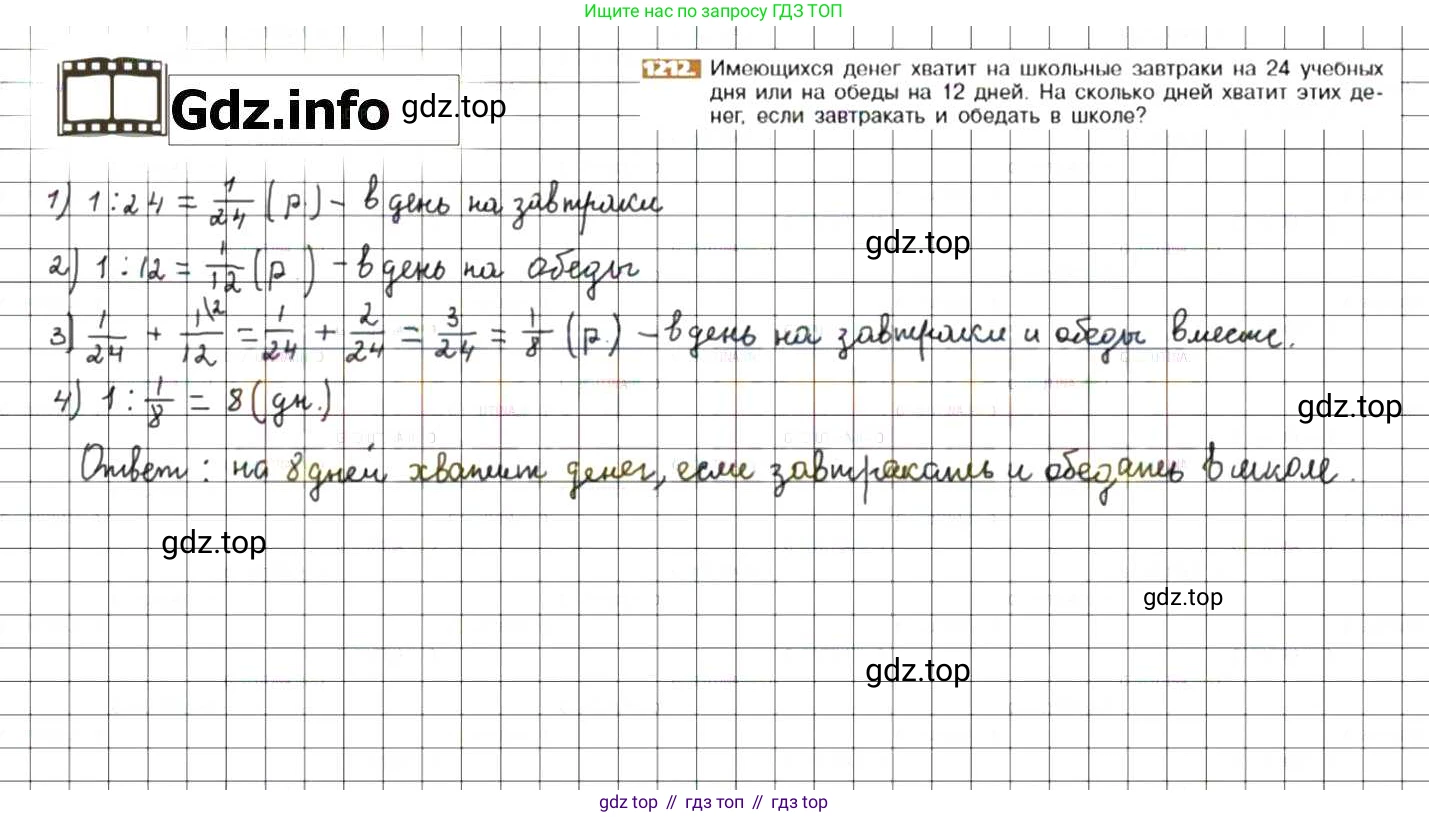 Ищите нас по запросу ГДЗ ТОП
Gdz.info gdz.top
1212. Имеющихся денег хватит на школьные завтраки на 24 учебных
дня или на обеды на 12 дней. На сколько дней хватит этих де-
нег, если завтракать и обедать в школе?
1) 1 : 24 = 1/24 (р.) – в день на завтраки
gdz.top
2) 1 : 12 = 1/12 (р.) – в день на обеды
3) 1/24 + 1\2/12 = 1/24 + 2/24 = 3/24 = 1/8 (р.) – в день на завтраки и обеды вместе.
4) 1 : 1/8 = 8 (дн.)
gdz.top
Ответ: на 8 дней хватит денег, если завтракать и обедать в школе.
gdz.top
gdz.top
gdz.top
gdz top // гдз топ // gdz top